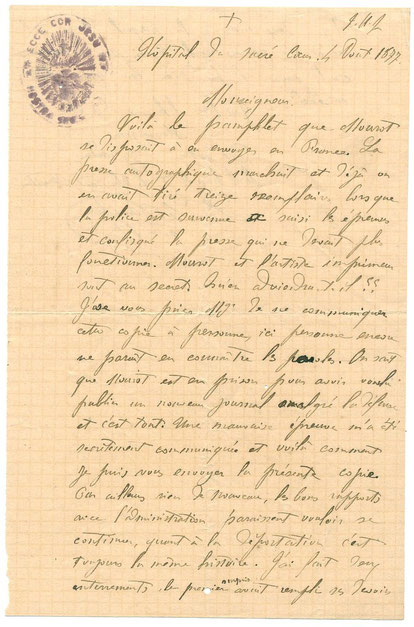 EN ECCE COR JESU ET
J. M. J
+
Hôpital du sacré Cœur. 4 Août 1877
Monseigneur,
Voilà le pamphlet que Mourot
se disposait à envoyer en France. La
presse autographique marchait et déjà on
en avait tiré treize exemplaires lorsque
la police est survenue saisi les épreuves
et confisqué la presse qui ne devait plus
fonctionner. Mourot et l'artiste imprimeur
sont au secret. Qu'en adviendra-t-il ??
J'ose vous prier Mgr de ne communiquer
cette copie à personne, ici personne encore
ne parait en connaître les paroles. On sait
que Mourot est en prison pour avoir voulu
publier un nouveau journal malgré la défense
et c'est tout. Une mauvaise épreuve m'a été
secrètement communiquée et voilà comment
je puis vous envoyer la présente copie.
Par ailleurs rien de nouveau, les bons rapports
avec l'administration paraissent vouloir se
continuer, quant à la déportation c'est
toujours la même histoire. J'ai fait deux
enterrements, le premier avait rempli ses devoirs